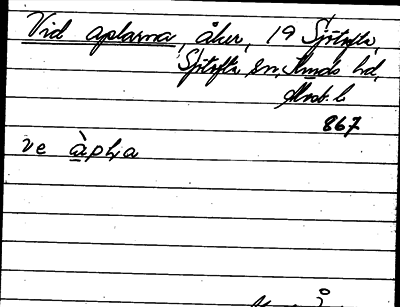 Vid aplarna, åker, 19 Sjötofta,
Sjötofta sn, Kinds hd,
Älvsb. l.
867
ve àpḷa